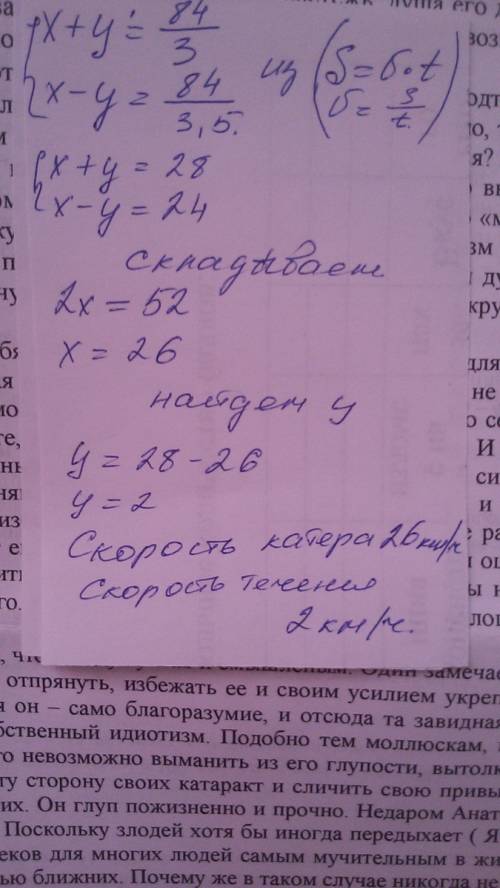 x + y = 84/3
x - y = 84/3,5.
из (S = v·t
v = S/t.)
x + y = 28
x - y = 24
складываем
2x = 52
x = 26
найдем y
y = 28 - 26
y = 2
Скорость катера 26 км/ч
Скорость течения
2 км/ч.
Один замечае
отпрянуть, избежать ее и своим усилием укреп
он – само благоразумие, и отсюда та завидная
бственный идиотизм. Подобно тем моллюскам,
го невозможно выманить из его глупости, вытолк
гу сторону своих катаракт и сличить свою привы
их. Он глуп пожизненно и прочно. Недаром Анат
Поскольку злодей хотя бы иногда передыхает ( Я
еков для многих людей самым мучительным в жи
ью ближних. Почему же в таком случае никогда не